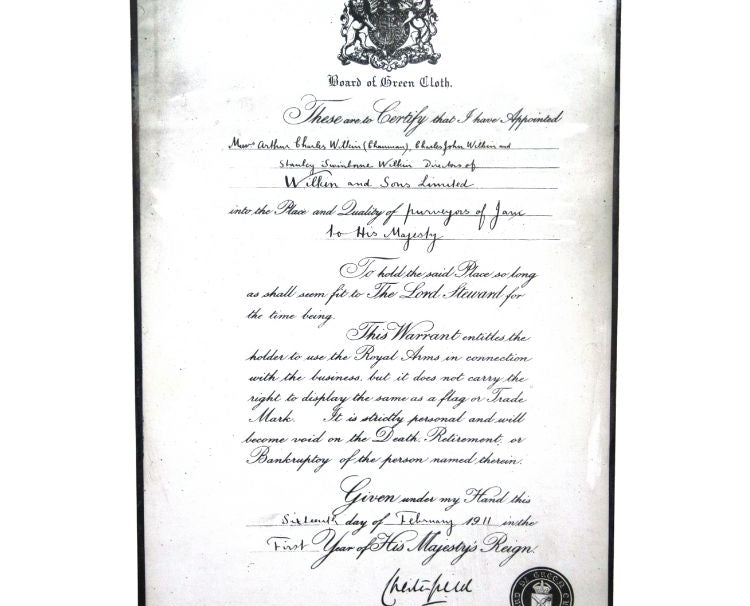 Board of Green Cloth.
These are to Certify that I have Appointed
Messrs Arthur Charles Wilkin (Chairman), Charles John Wilkin and
Stanley Swinborne Wilkin Directors of
Wilkin and Sons Limited
into the Place and Quality of purveyors of Jam
to His Majesty
To hold the said Place so long
as shall seem fit to The Lord Steward for
the time being.
This Warrant entitles the
holder to use the Royal Arms in connection
with the business, but it does not carry the
right to display the same as a flag or Trade
Mark. It is strictly personal and will
become void on the Death, Retirement, or
Bankruptcy of the person named therein.
Given under my Hand this
Sixteenth day of February 1911 in the
First Year of His Majesty's Reign.
Chesterfield
OF GREEN